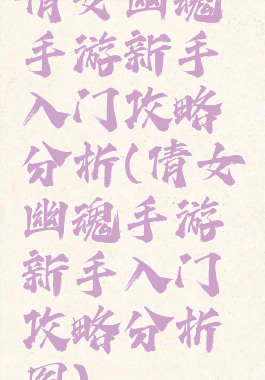 倩女幽魂
手游新手
入门攻略
分析(倩女
幽魂手游
新手入门
攻略分析
图)